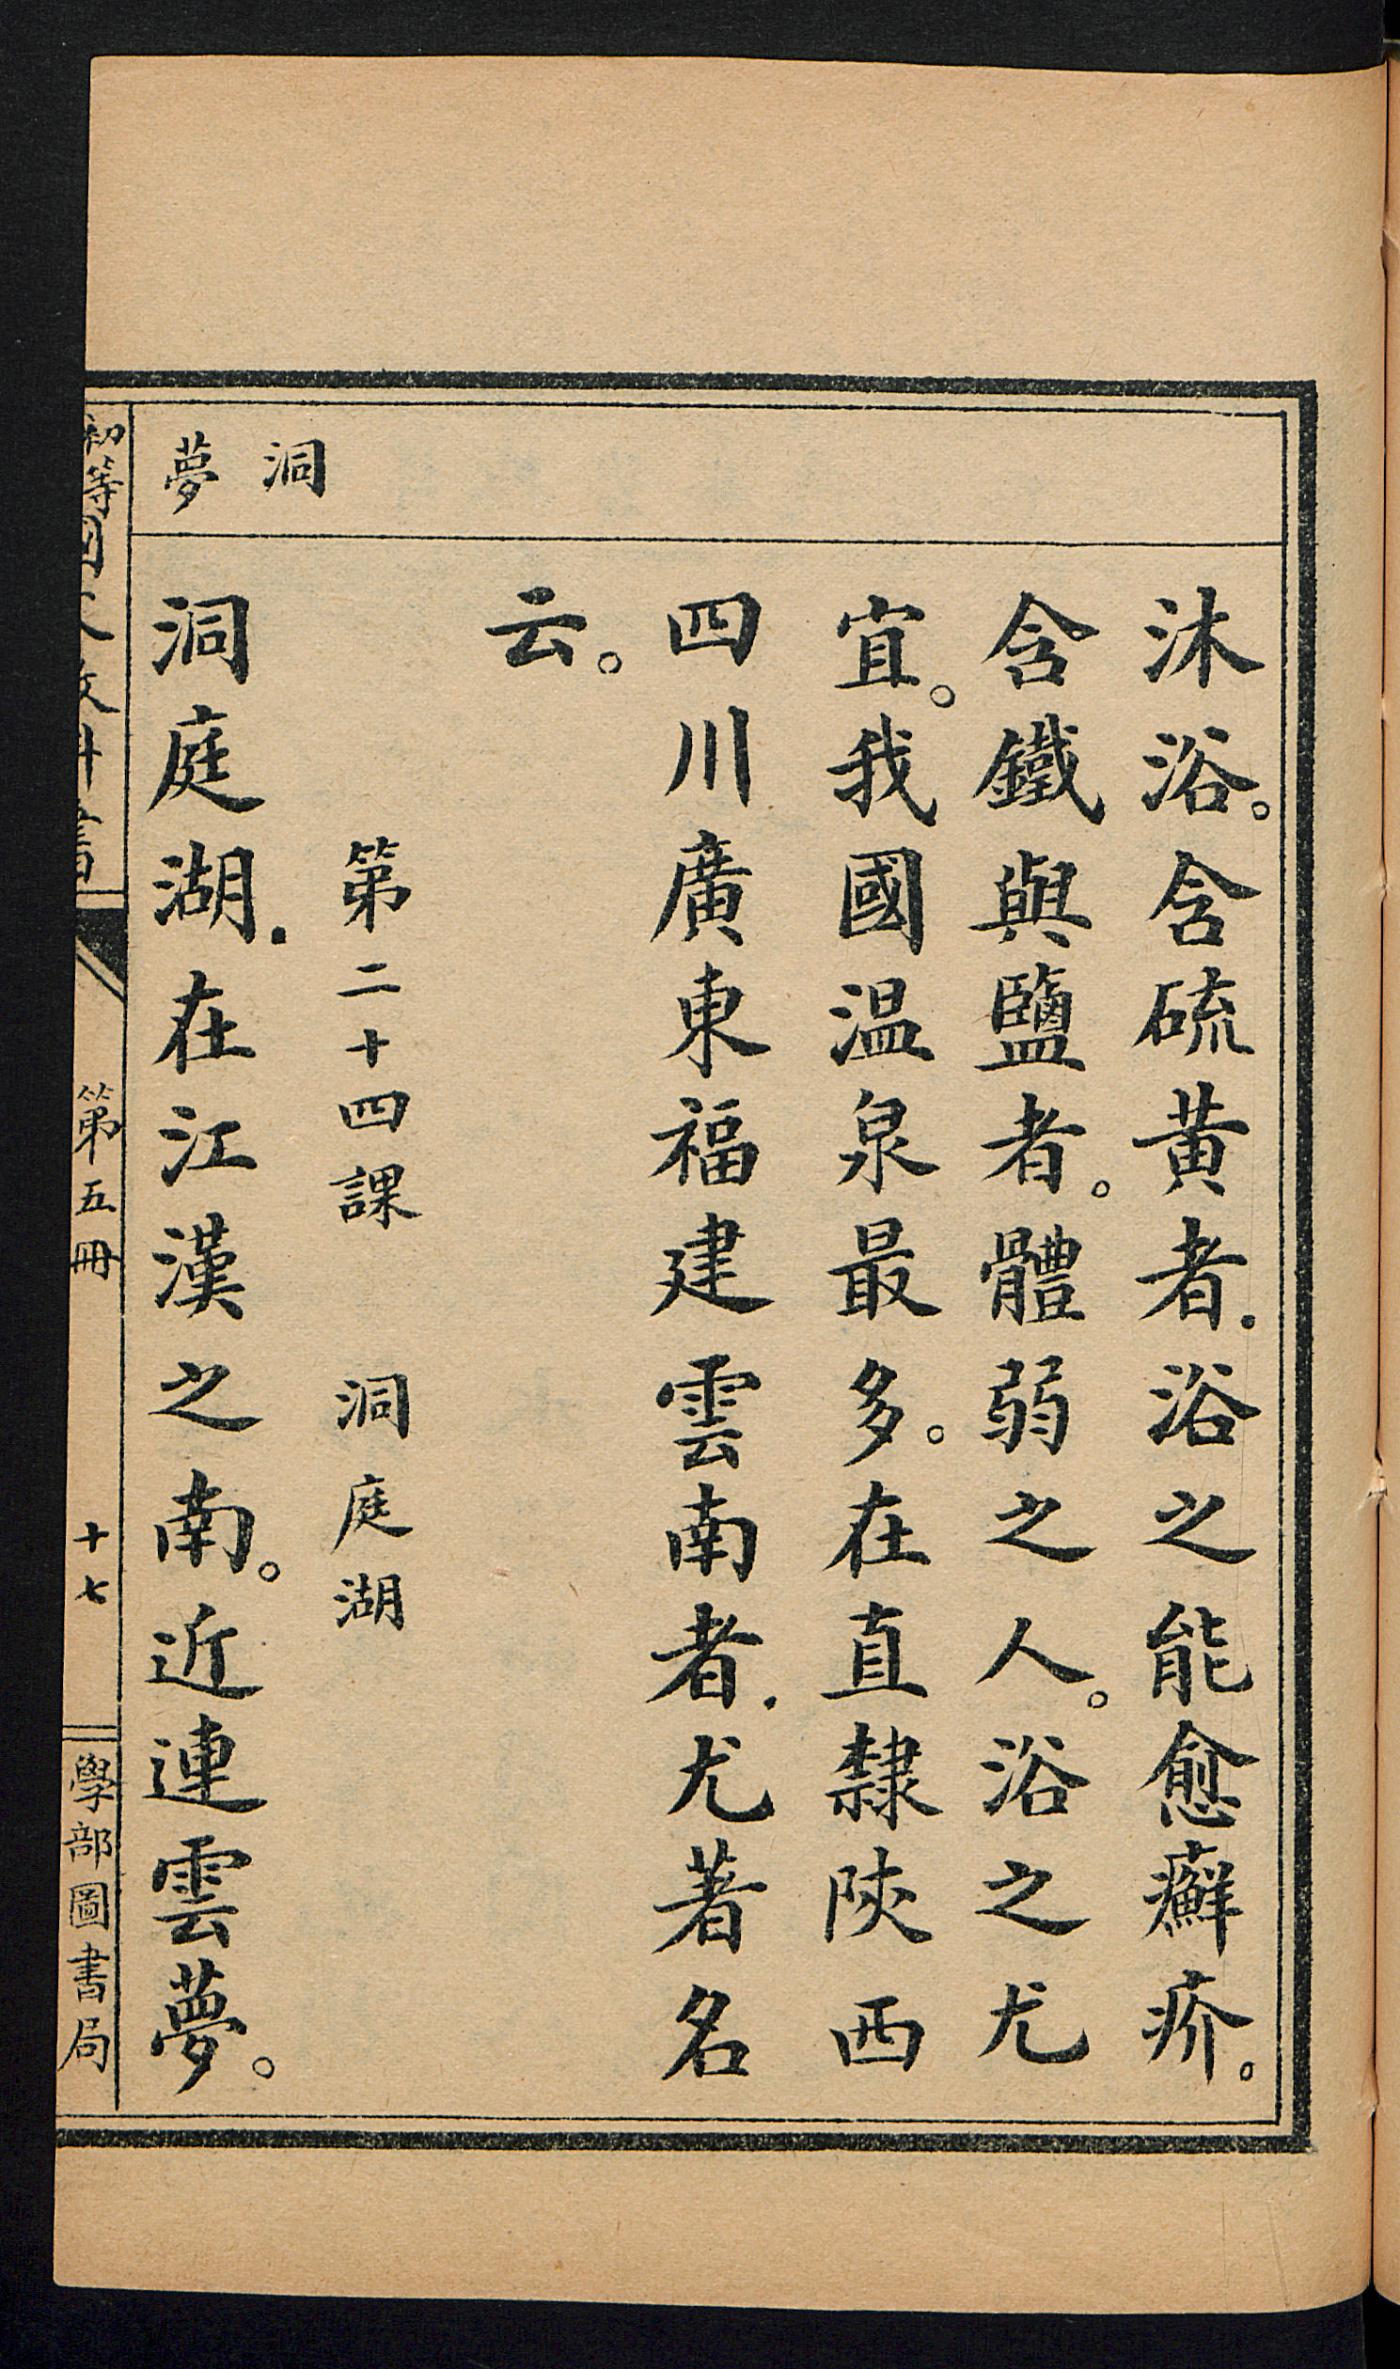 沐浴。含硫黄者．浴之能愈癬疥。
含鐵與鹽者。體弱之人。浴之尤
宜。我國温泉最多。在直隸陜西
四川廣東福建雲南者．尤著名
云。
第二十四課　洞庭湖
洞
夢
洞庭湖．在江漢之南。近連雲夢。
初等國文教科書
第五冊
十七
學部圖書局